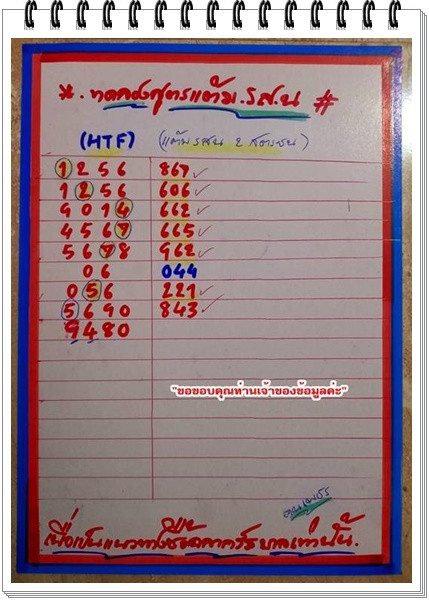 * . ทดลองสูตรแต้ม.ร.ส.น #
(HTF) (แต้ม รสน 2 สูตรชน)
1256 867 ✓
1256 606 ✓
9014 662 ✓
4567 665 ✓
5678 962 ✓
06 044
056 221 ✓
5690 843 ✓
9480
"ขอขอบคุณท่านเจ้าของข้อมูลค่ะ"
เพื่อเป็นแนวทางใช้ซื้อสลากรัฐบาลเท่านั้น.